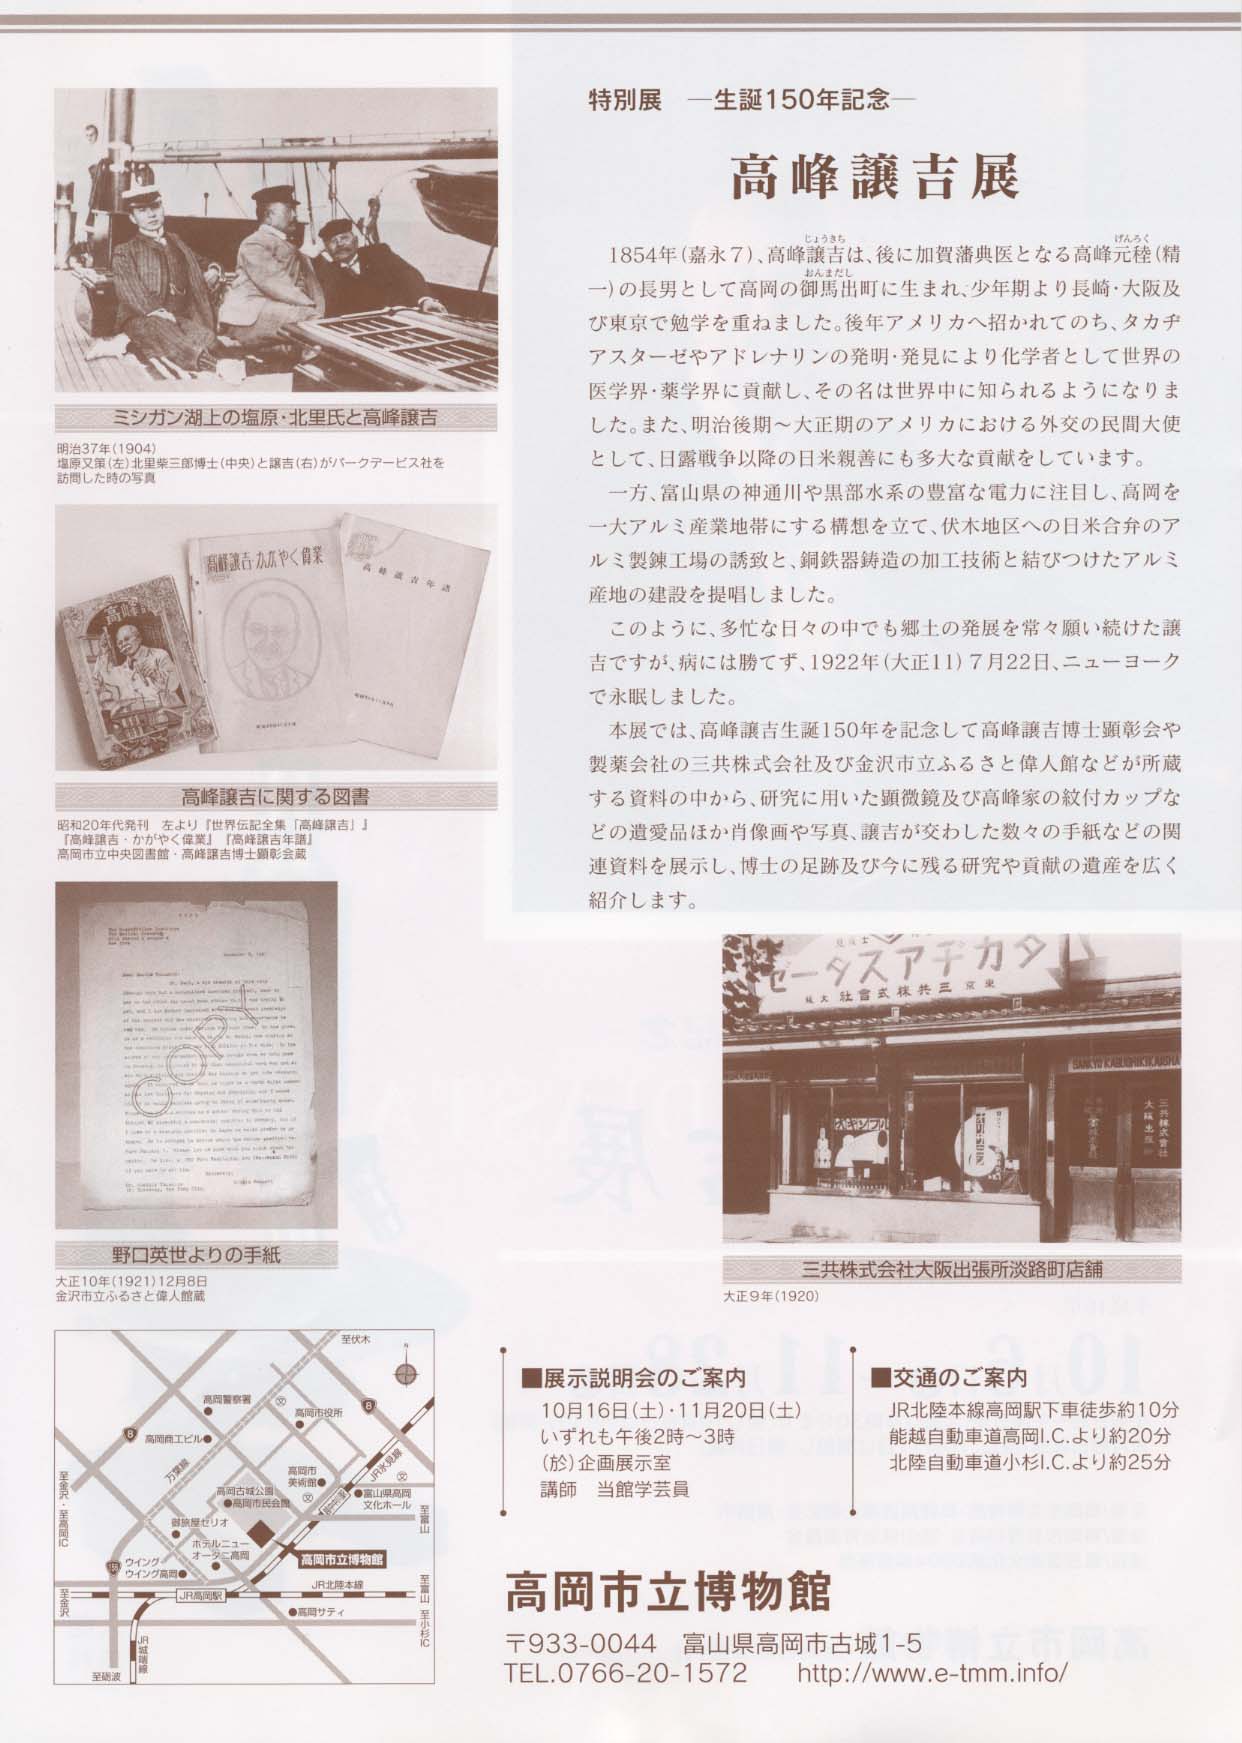 特別展 ―生誕150年記念―
高峰譲吉展
1854年(嘉永7)、高峰譲吉は、後に加賀藩典医となる高峰元稑(精
じょうきち
げんろく
一)の長男として高岡の御馬出町に生まれ、少年期より長崎・大阪及
おんまだし
び東京で勉学を重ねました。後年アメリカへ招かれてのち、タカヂ
アスターゼやアドレナリンの発明・発見により化学者として世界の
医学界・薬学界に貢献し、その名は世界中に知られるようになりま
した。また、明治後期～大正期のアメリカにおける外交の民間大使
として、日露戦争以降の日米親善にも多大な貢献をしています。
一方、富山県の神通川や黒部水系の豊富な電力に注目し、高岡を
一大アルミ産業地帯にする構想を立て、伏木地区への日米合弁のア
ルミ製錬工場の誘致と、銅鉄器鋳造の加工技術と結びつけたアルミ
産地の建設を提唱しました。
このように、多忙な日々の中でも郷土の発展を常々願い続けた譲
吉ですが、病には勝てず、1922年(大正11)7月22日、ニューヨーク
で永眠しました。
本展では、高峰譲吉生誕150年を記念して高峰譲吉博士顕彰会や
製薬会社の三共株式会社及び金沢市立ふるさと偉人館などが所蔵
する資料の中から、研究に用いた顕微鏡及び高峰家の紋付カップな
どの遺愛品ほか肖像画や写真、譲吉が交わした数々の手紙などの関
連資料を展示し、博士の足跡及び今に残る研究や貢献の遺産を広く
紹介します。
ミシガン湖上の塩原・北里氏と高峰譲吉
明治37年(1904)
塩原又策(左)北里柴三郎博士(中央)と譲吉(右)がパークデービス社を
訪問した時の写真
高峰譲吉・かがやく偉業
高峰譲吉年譜
高峰譲吉に関する図書
昭和20年代発刊 左より『世界伝記全集「高峰譲吉」』
『高峰譲吉・かがやく偉業』『高峰譲吉年譜』
高岡市立中央図書館・高峰譲吉博士顕彰会蔵
COPY
野口英世よりの手紙
大正10年(1921)12月8日
金沢市立ふるさと偉人館蔵
ゼータスアヂカタ
阪大 社會式株共三 京東
SANKYO KABUSHIKIKAISHA
三共株式会社大阪出張所淡路町店舗
大正9年(1920)
至伏木
N
高岡警察署
高岡市役所
8
8
高岡商工ビル
万葉線
JR氷見線
至金沢・至高岡IC
高岡市
美術館
高岡古城公園
高岡市民会館
富山県高岡
文化ホール
至富山
御旅屋セリオ
ホテルニュー
オータニ高岡
高岡市立博物館
156
ウイング・
ウイング高岡
JR高岡駅
JR北陸本線
至金沢
至富山
至小杉IC
高岡サティ
JR城端線
至砺波
■展示説明会のご案内
10月16日(土)・11月20日(土)
いずれも午後2時～3時
(於)企画展示室
講師 当館学芸員
■交通のご案内
JR北陸本線高岡駅下車徒歩約10分
能越自動車道高岡I.C.より約20分
北陸自動車道小杉I.C.より約25分
高岡市立博物館
〒933-0044 富山県高岡市古城1-5
TEL.0766-20-1572 http://www.e-tmm.info/